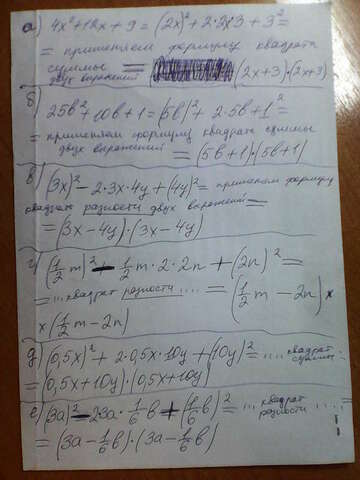 а) 4x² + 12x + 9 = (2x)² + 2·2x·3 + 3² =
= применяем формулу квадрата
суммы двух выражений = (2x+3)·(2x+3)
б) 25b² + 10b + 1 = (5b)² + 2·5b + 1² =
= применяем формулу квадрата суммы
двух выражений = (5b+1)·(5b+1)
в) (3x)² - 2·3x·4y + (4y)² = применяем формулу
квадрата разности двух выражений =
= (3x-4y)·(3x-4y)
г) (1/2 m)² - 1/2 m·2·2n + (2n)² =
= ... квадрат разности .... = (1/2 m - 2n) ×
× (1/2 m - 2n)
д) (0,5x)² + 2·0,5x·10y + (10y)² = .... квадрат суммы..
= (0,5x+10y)·(0,5x+10y)
е) (3a)² - 23a·1/6 b + (1/6 b)² = ... квадрат разности .....=
= (3a - 1/6 b)·(3a - 1/6 b)